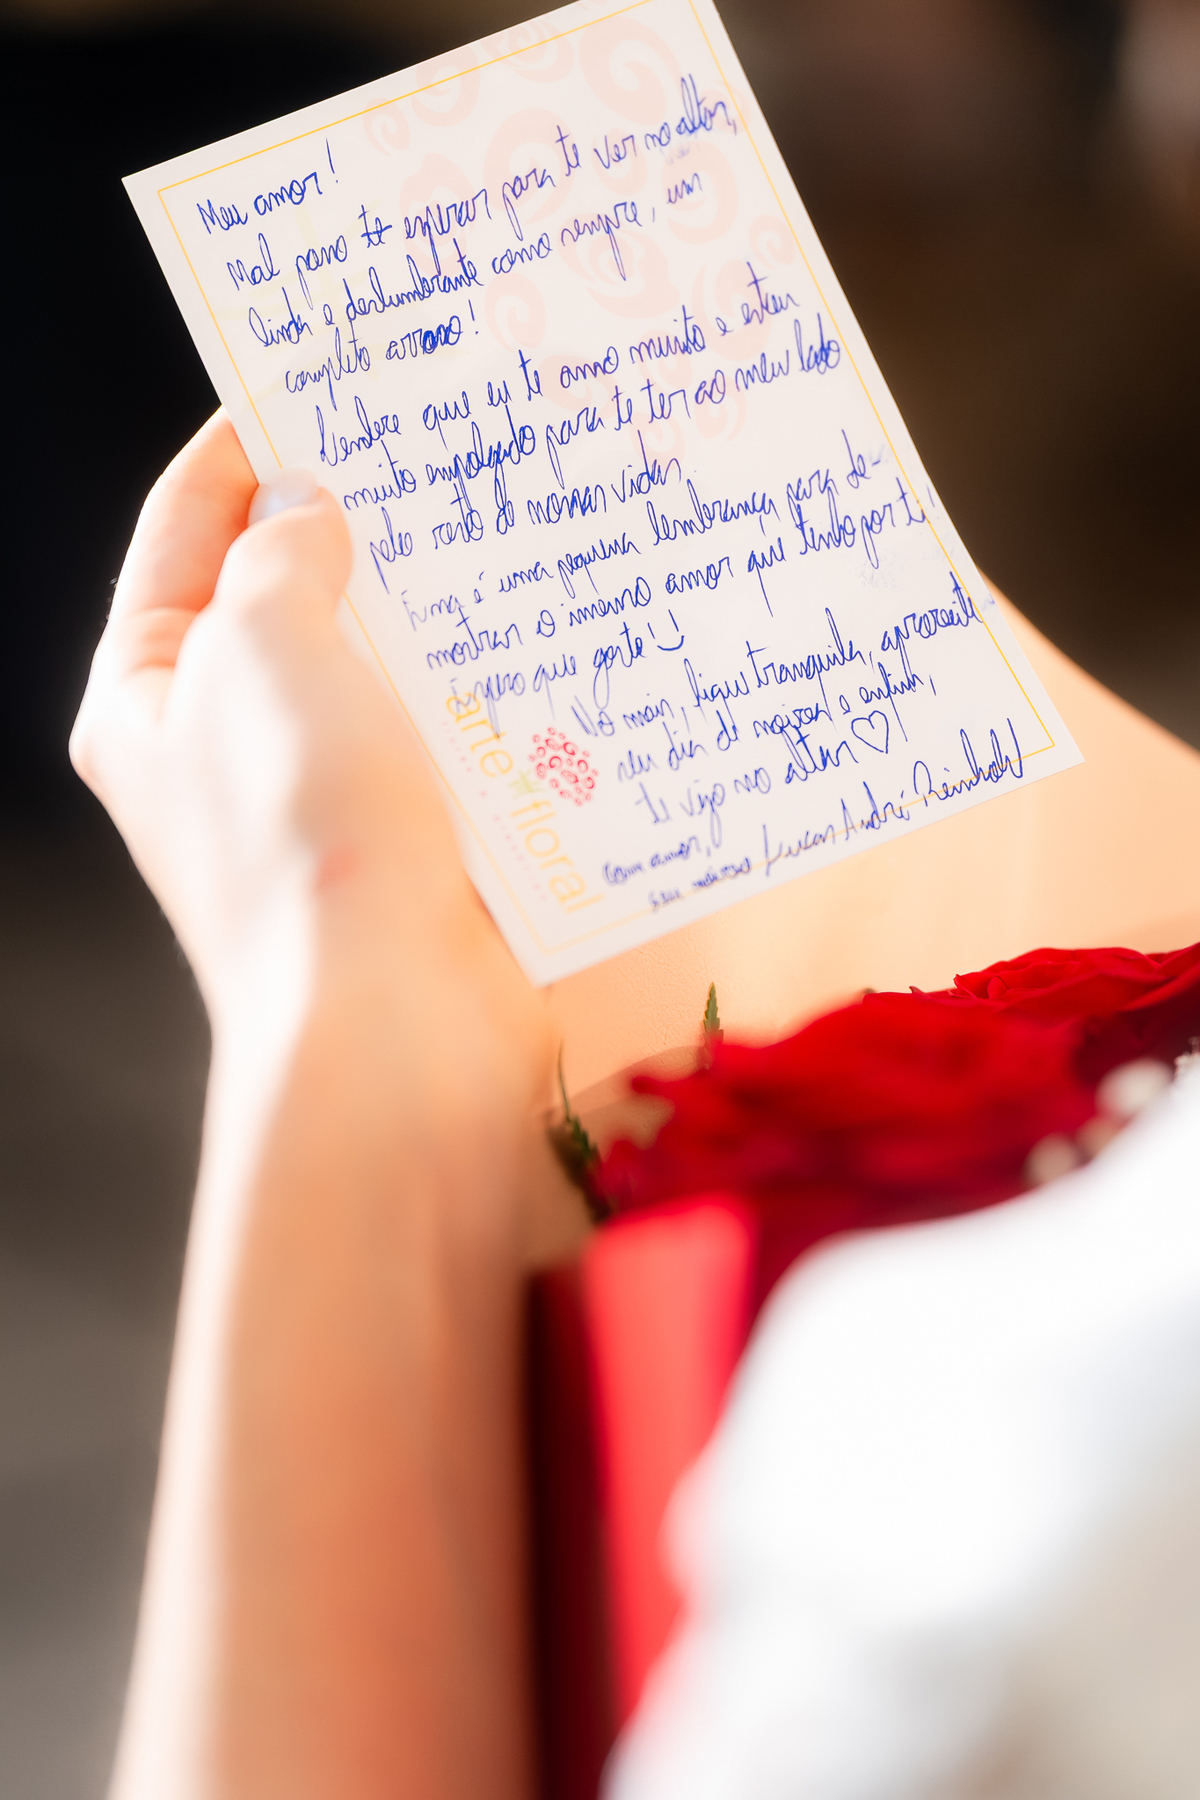 Meu amor!
Mal posso te esperar para te ver no altar,
linda e deslumbrante como sempre, um
completo arraso!
Lembre que eu te amo muito e estou
muito empolgado para te ter ao meu lado
pelo resto de nossas vidas.
Essa é uma pequena lembrança para de-
mostrar o imenso amor que tenho por ti!
Espero que goste :)
No mais, fique tranquila, aproveite
seu dia de noiva e enfim,
te vejo no altar ♡
Com amor,
seu noivo Lucas André Reinhold
arte floral